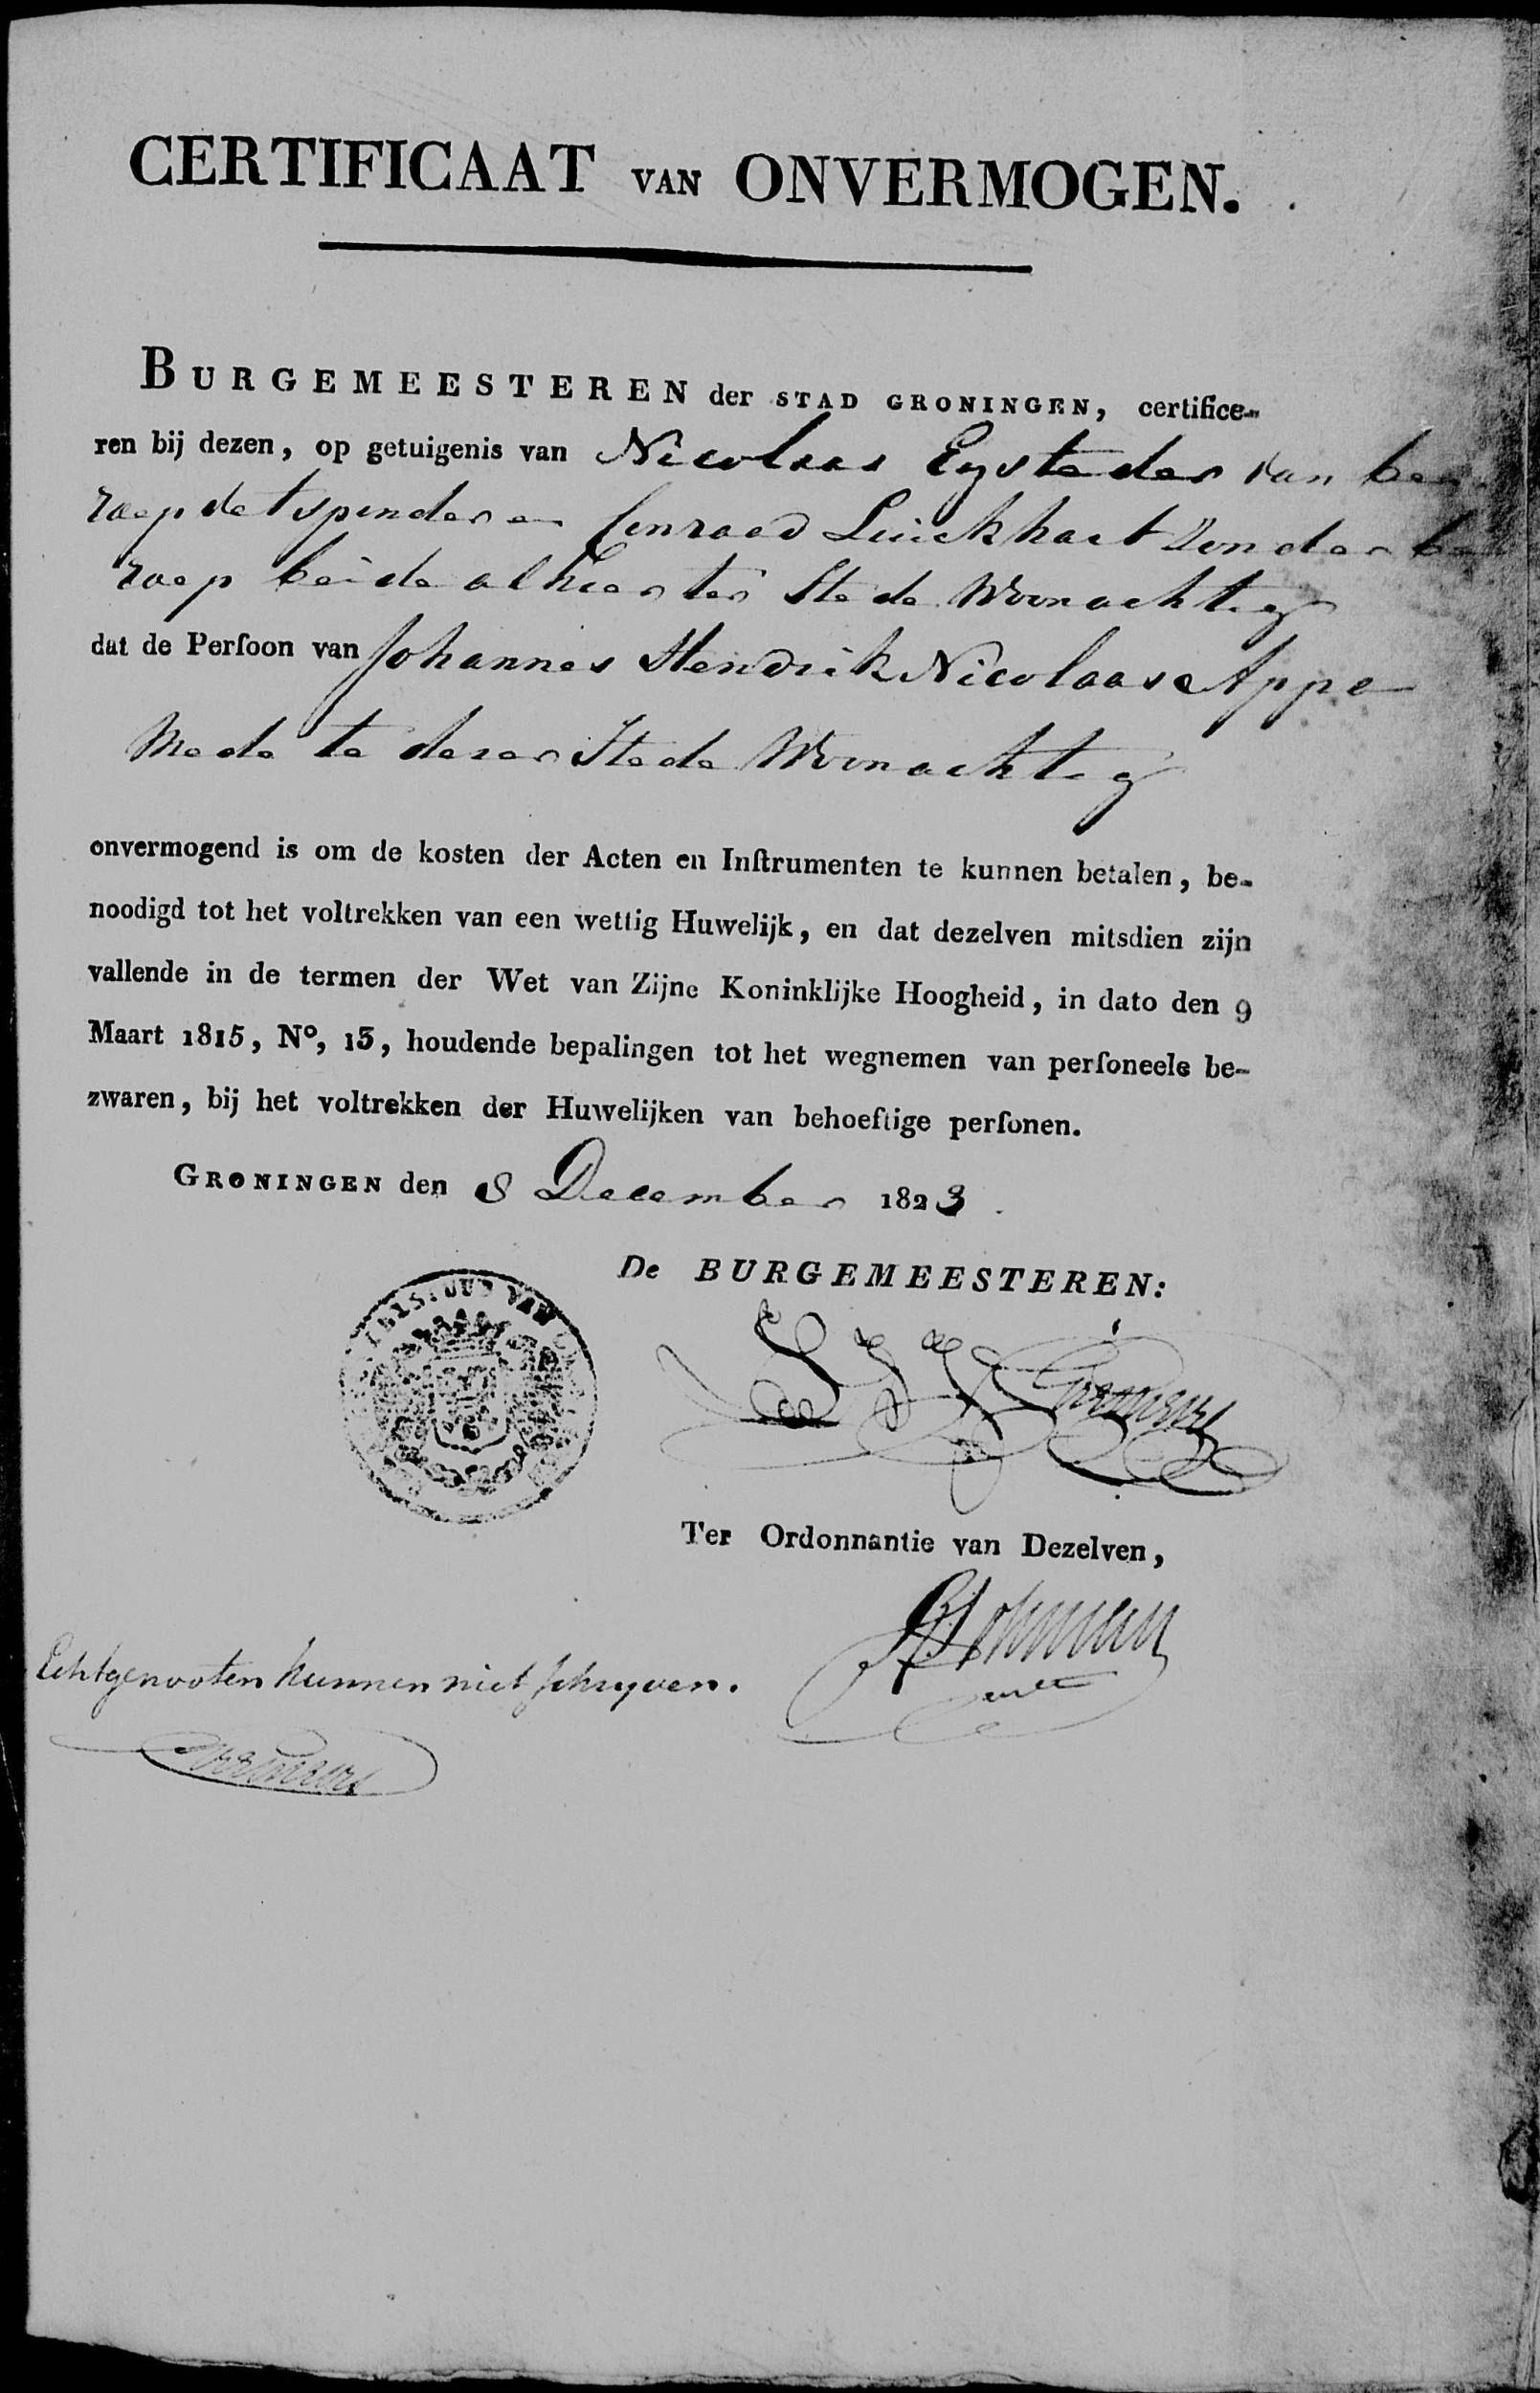 CERTIFICAAT VAN ONVERMOGEN.
BURGEMEESTEREN der STAD GRONINGEN, certifice-
ren bij dezen, op getuigenis van Nicolaas Eysteder van be
roep en Conraad Luickhart Zonder be
roep beide alhier ter Stede Woonachtig
dat de Perſoon van Johannes Hendrik Nicolaas Appe
Mede te dezer Stede Woonachtig
onvermogend is om de kosten der Acten en Inſtrumenten te kunnen betalen, be-
noodigd tot het voltrekken van een wettig Huwelijk, en dat dezelven mitsdien zijn
vallende in de termen der Wet van Zijne Koninklijke Hoogheid, in dato den 9
Maart 1815, N°, 13, houdende bepalingen tot het wegnemen van perſoneele be-
zwaren, bij het voltrekken der Huwelijken van behoeftige perſonen.
GRONINGEN den 8 December 1823.
De BURGEMEESTEREN:
Ter Ordonnantie van Dezelven,
Lohman
Echtgenooten kunnen niet schryven.